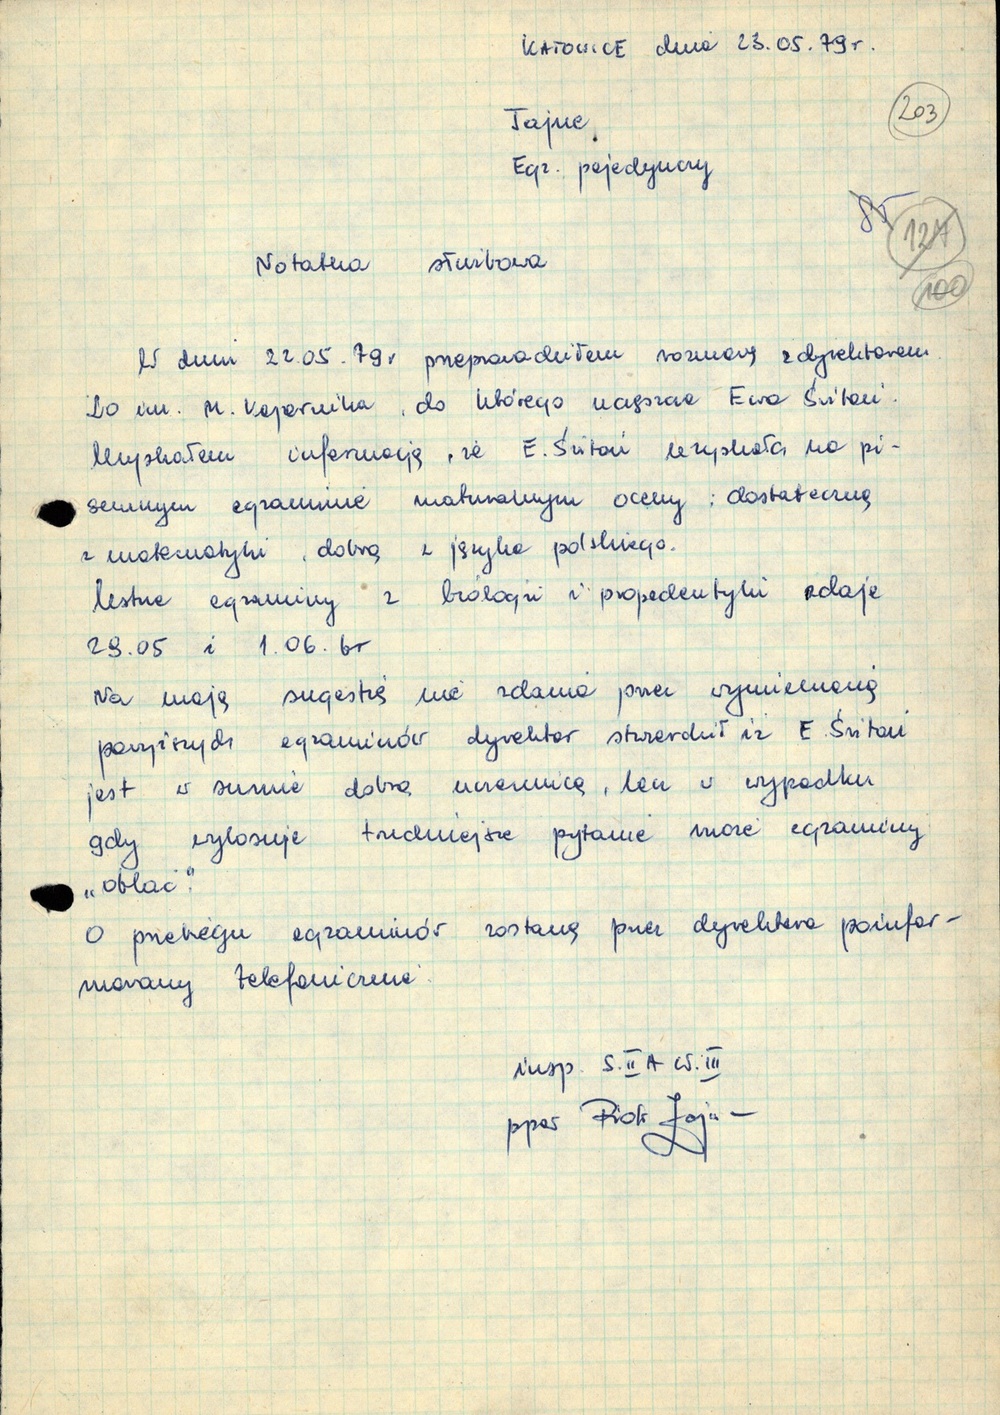 KATOWICE dnia 23.05.79r.
203
Tajne
Egz. pojedynczy
85
124
100
Notatka służbowa
W dniu 22.05.79r przeprowadziłem rozmowę z dyrektorem
LO im. M. Kopernika, do którego uczęszcza Ewa Świtoń.
Uzyskałem informację, że E. Świtoń uzyskała na pi-
semnym egzaminie maturalnym oceny: dostateczną
z matematyki, dobrą z języka polskiego.
Ustne egzaminy z biologii i propedeutyki zdaje
29.05 i 1.06. br
Na moją sugestię nie zdania przez wymienioną
powyższych egzaminów dyrektor stwierdził iż E. Świtoń
jest w sumie dobrą uczennicą, lecz w wypadku
gdy wylosuje trudniejsze pytanie może egzaminy
„oblać".
O przebiegu egzaminów zostanę przez dyrektora poinfor-
mowany telefonicznie.
insp. S. II A W. III
ppor Piotr